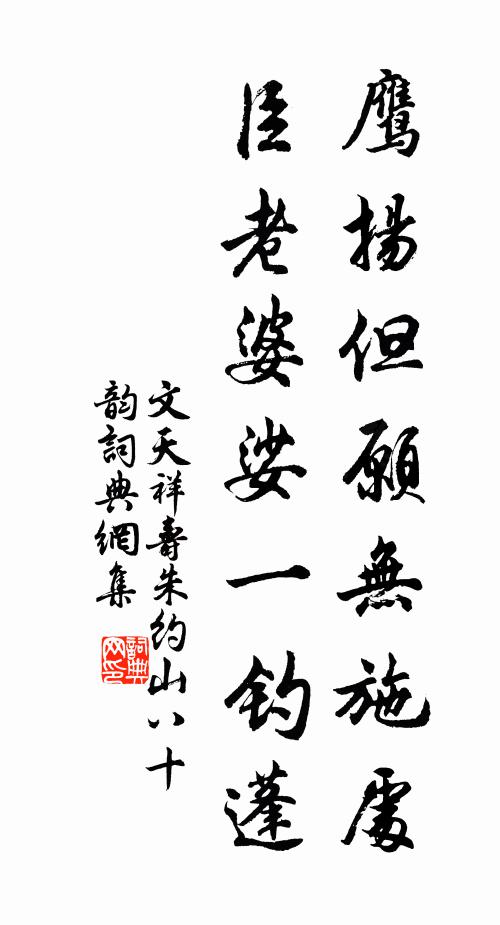 鹰揚但願無施處
臣老婆娑一钓蓬
文天祥壽朱約山八十
韵詞典網集
詞典網印